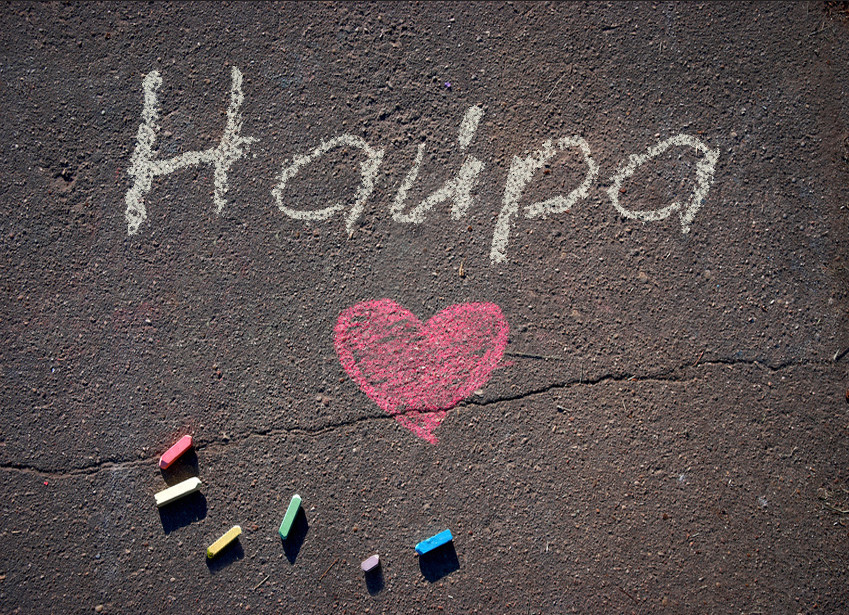 Наира